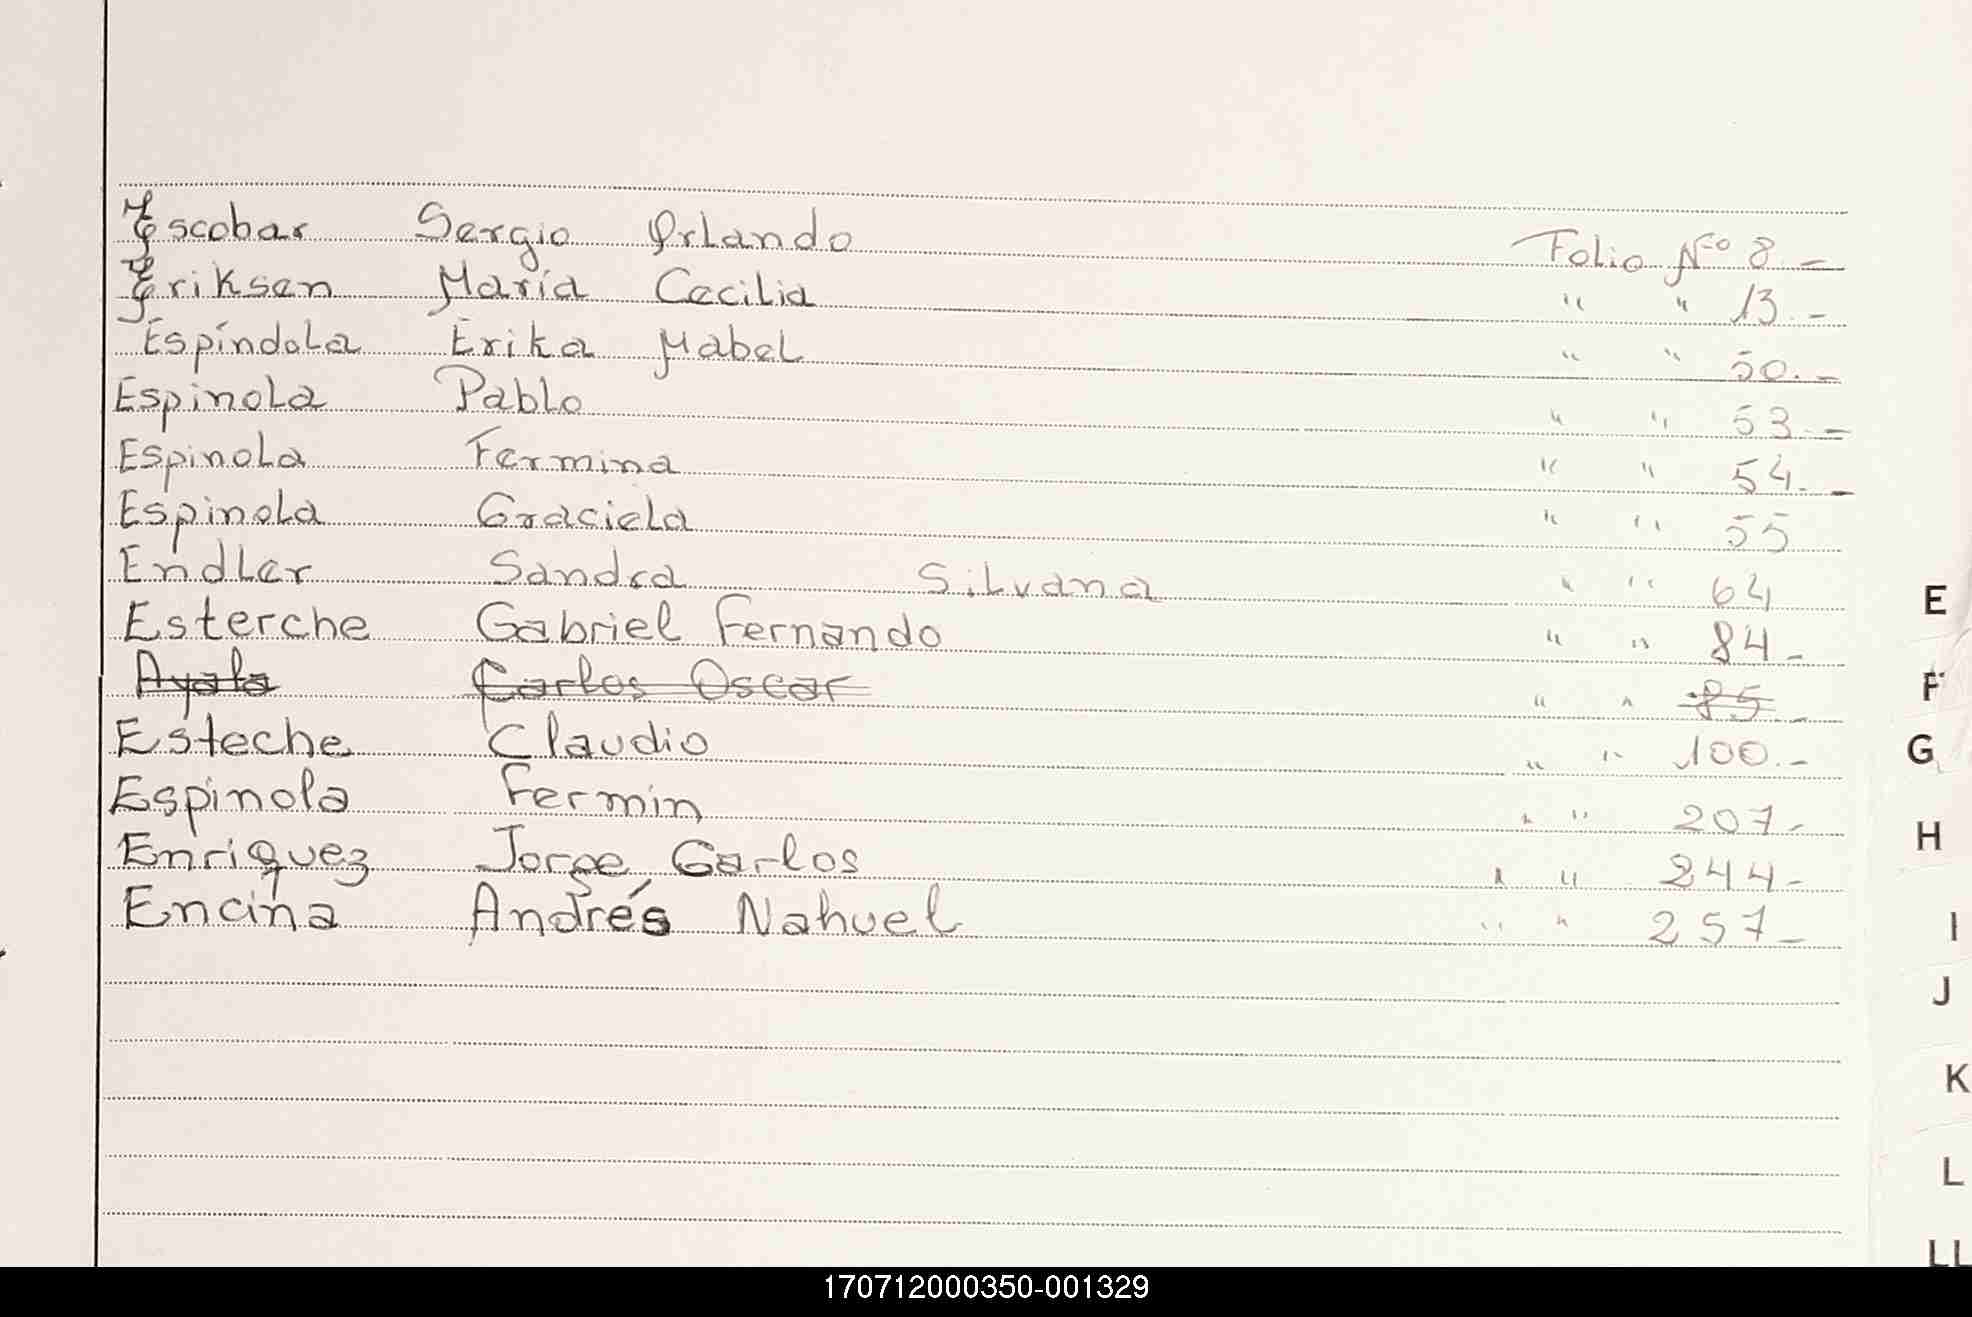 Escobar Sergio Orlando Folio Nº 8.-
Eriksen María Cecilia " " 13.-
Espíndola Erika Mabel " " 50.-
Espinola Pablo " " 53.-
Espinola Fermina " " 54.-
Espinola Graciela " " 55
Endler Sandra Silvana " " 64
Esterche Gabriel Fernando " " 84-
Ayala Carlos Oscar " " 85.-
Esteche Claudio " " 100.-
Espinola Fermin " " 207-
Enriquez Jorge Carlos " " 244-
Encina Andrés Nahuel " " 257-
E
F
G
H
I
J
K
L
LL
170712000350-001329